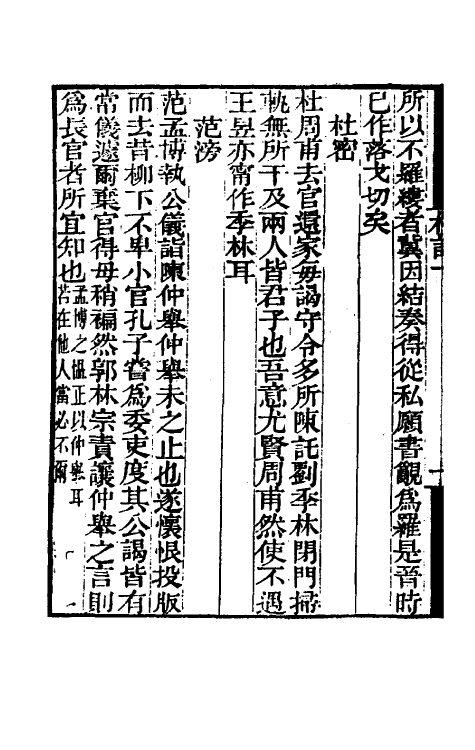 所以不羅縷者冀因結奏得從私願書覼爲羅是晉時
已作落戈切矣
杜密
杜周甫去官還家每謁守令多所陳託劉季林閉門掃
軌無所干及兩人皆君子也吾意尤賢周甫然使不遇
王昱亦甯作季林耳
范滂
范孟博執公儀詣陳仲舉仲舉未之止也遂懷恨投版
而去昔柳下不卑小官孔子嘗爲委吏度其公謁皆有
常儀遽爾棄官得毋稍褊然郭林宗責讓仲舉之言則
爲長官者所宜知也孟博之愠正以仲舉耳
若在他人當必不爾